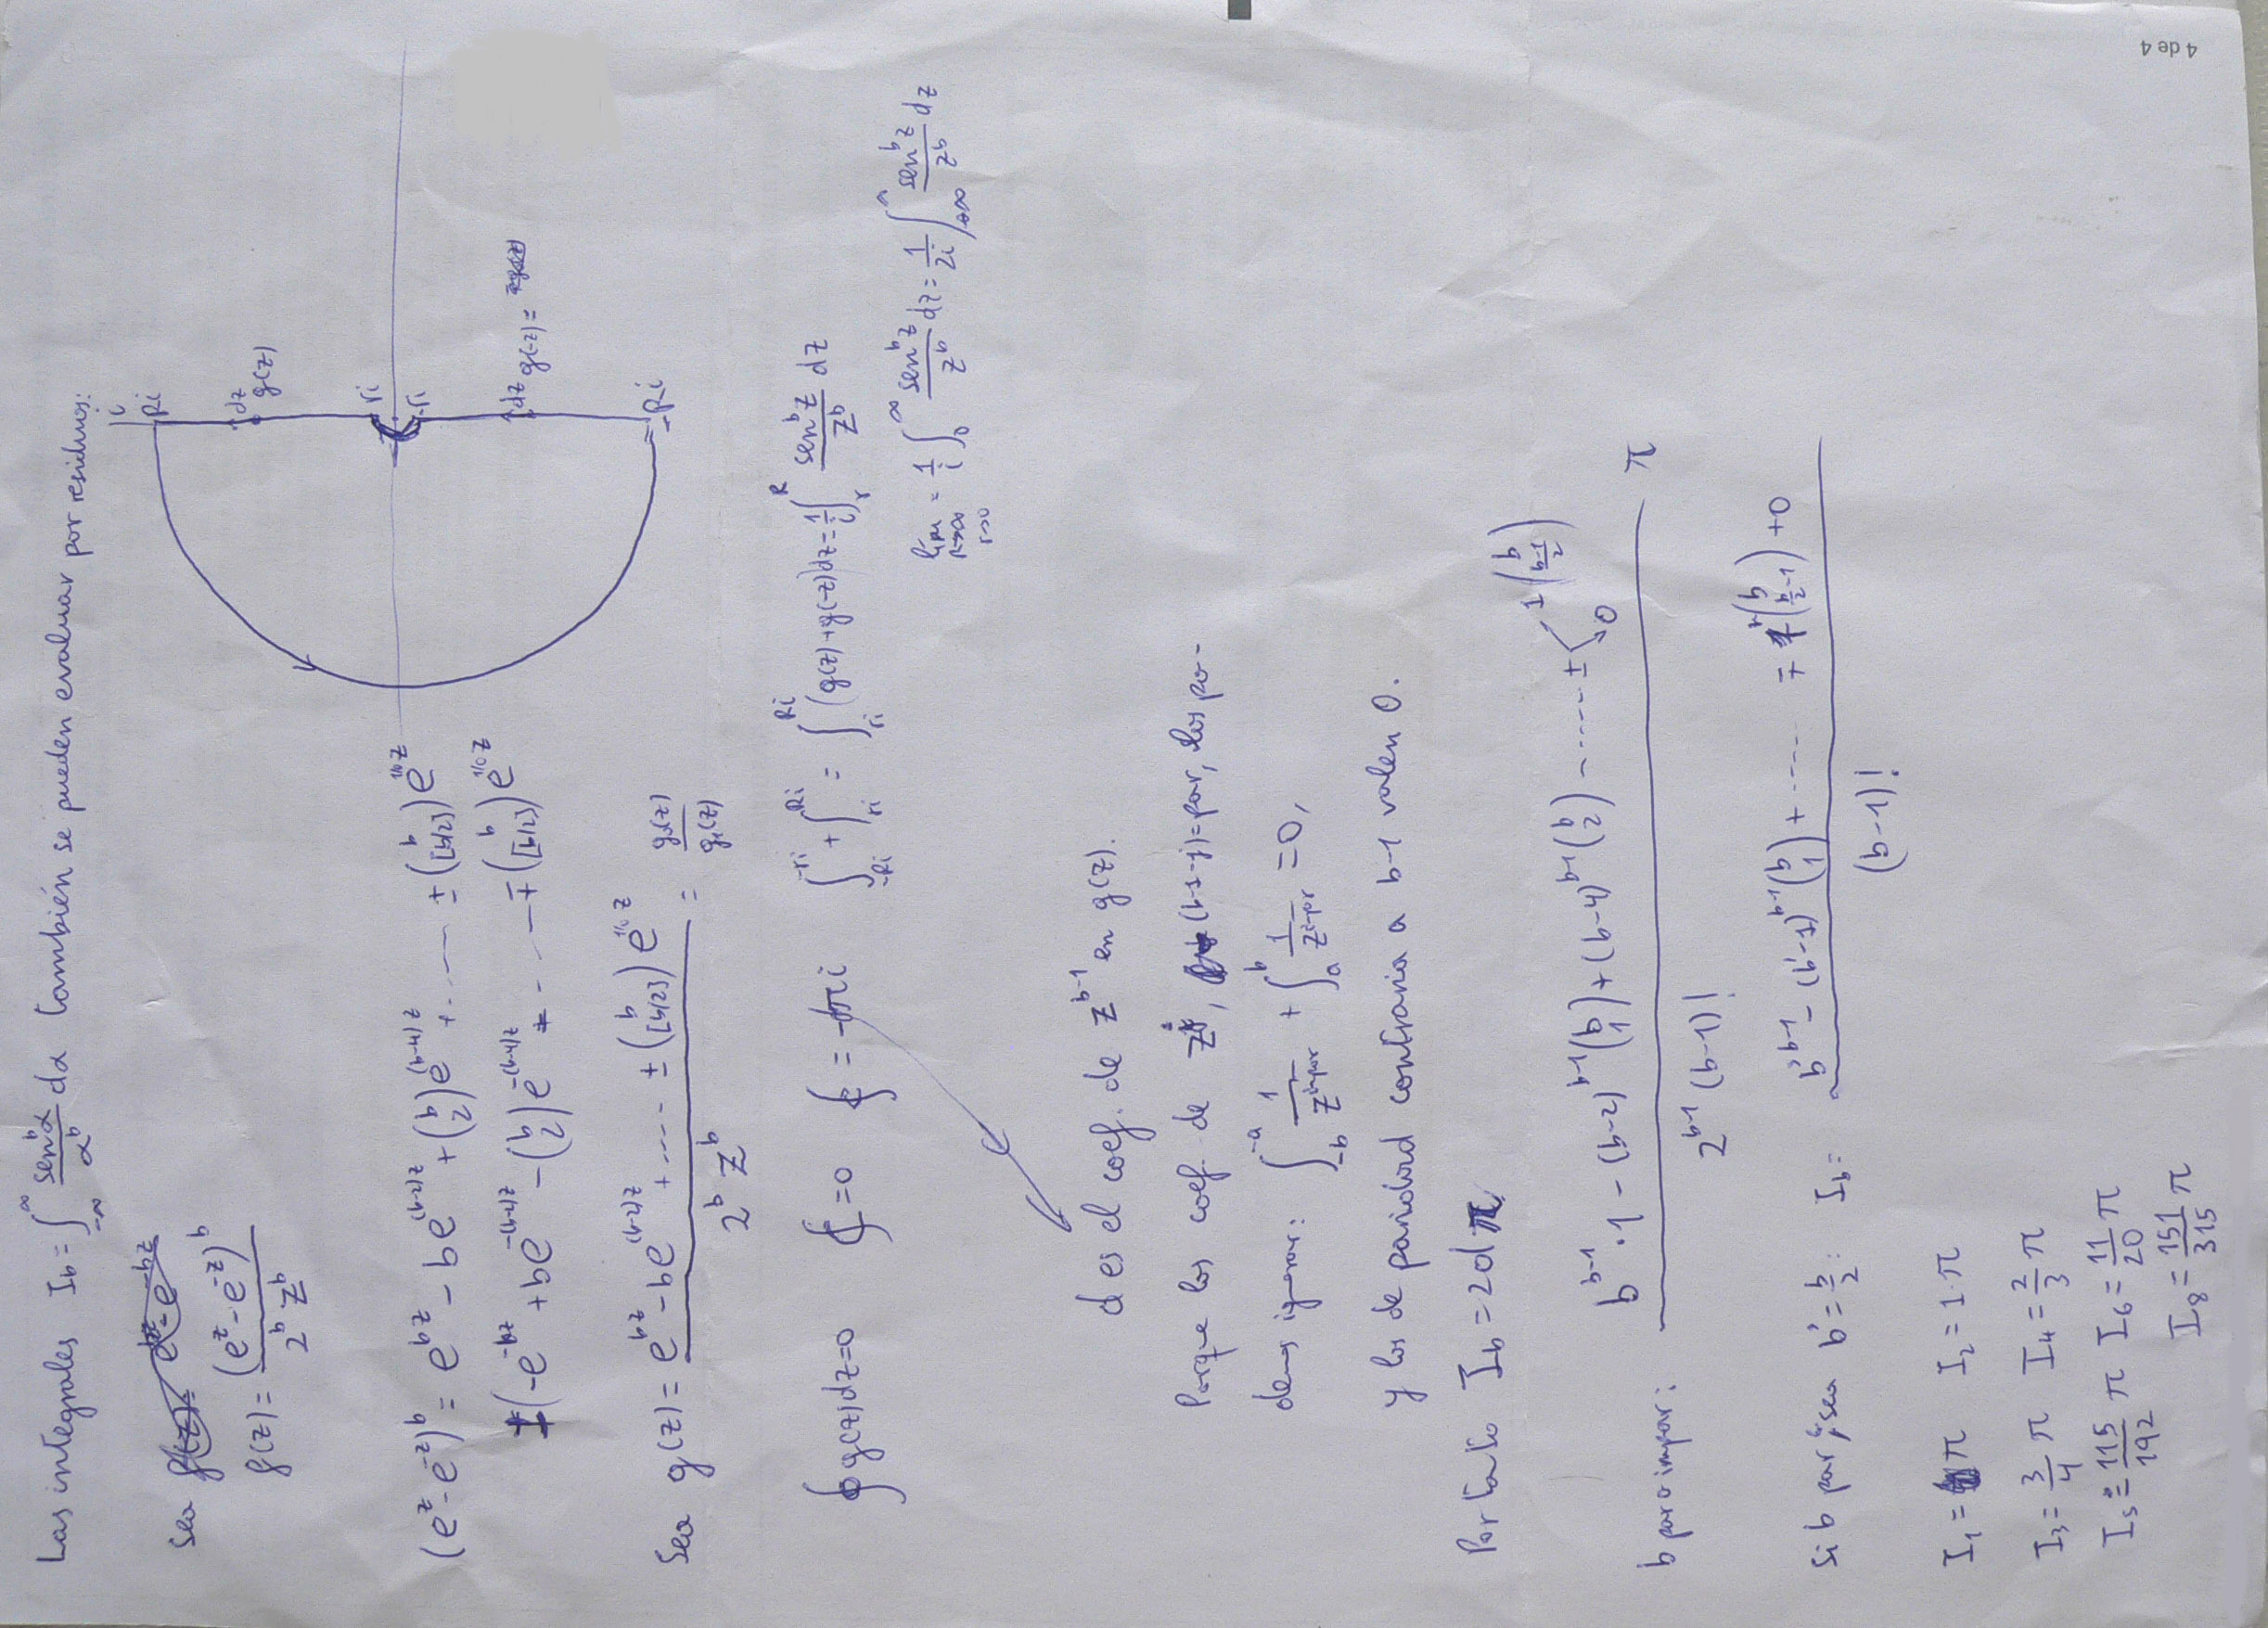 Las integrales I_b = ∫_{-∞}^{∞} sen^b α / α^b dα también se pueden evaluar por residuos:
Sea f(z) = (e^z - e^{-z})^b / 2^b z^b
i
Ri
dz g(z)
ri
-ri
dz g(-z) =
-Ri
(e^z - e^{-z})^b = e^{bz} - be^{(b-2)z} + (b 2) e^{(b-4)z} + ..... ± (b [b/2]) e^{1 ó 0 z}
∓ (-e^{-bz} + be^{-(b-2)z} - (b 2) e^{-(b-4)z} + .... ∓ (b [b/2]) e^{1 ó 0 z}
Sea g(z) = e^{bz} - be^{(b-2)z} + .... ± (b [b/2]) e^{1 ó 0 z} / 2^b z^b = g_2(z) / g_1(z)
∮ g(z)dz = 0 ∮ = 0 ∮ = -dπi ∫_{-Ri}^{-ri} + ∫_{ri}^{Ri} = ∫_{ri}^{Ri} (g(z) + g(-z)) dz = 1/i ∫_r^R sen^b z / z^b dz
lím R→∞ r→0 = 1/i ∫_0^∞ sen^b z / z^b dz = 1/2i ∫_{-∞}^∞ sen^b z / z^b dz
d es el coef. de z^{b-1} en g(z).
Porque los coef. de z^j, (b-1-j) = par, los po-
demos ignorar: ∫_{-b}^{-a} 1/z^{impar} + ∫_a^b 1/z^{impar} = 0,
y los de paridad contraria a b-1 valen 0.
Por tanto I_b = 2dπ
b par o impar: b^{b-1}·1 - (b-2)^{b-1} (b 1) + (b-4)^{b-1} (b 2) - ...... ± 1 (b (b-1)/2) 0 / 2^{b-1} (b-1)! π
Si b par, sea b' = b/2: I_b = b'^{b-1} - (b'-1)^{b-1} (b 1) + .... ∓ 1 (b b/2-1) + 0 / (b-1)!
I_1 = π I_2 = 1·π
I_3 = 3/4 π I_4 = 2/3 π
I_5 = 115/192 π I_6 = 11/20 π
I_8 = 151/315 π
4 de 4